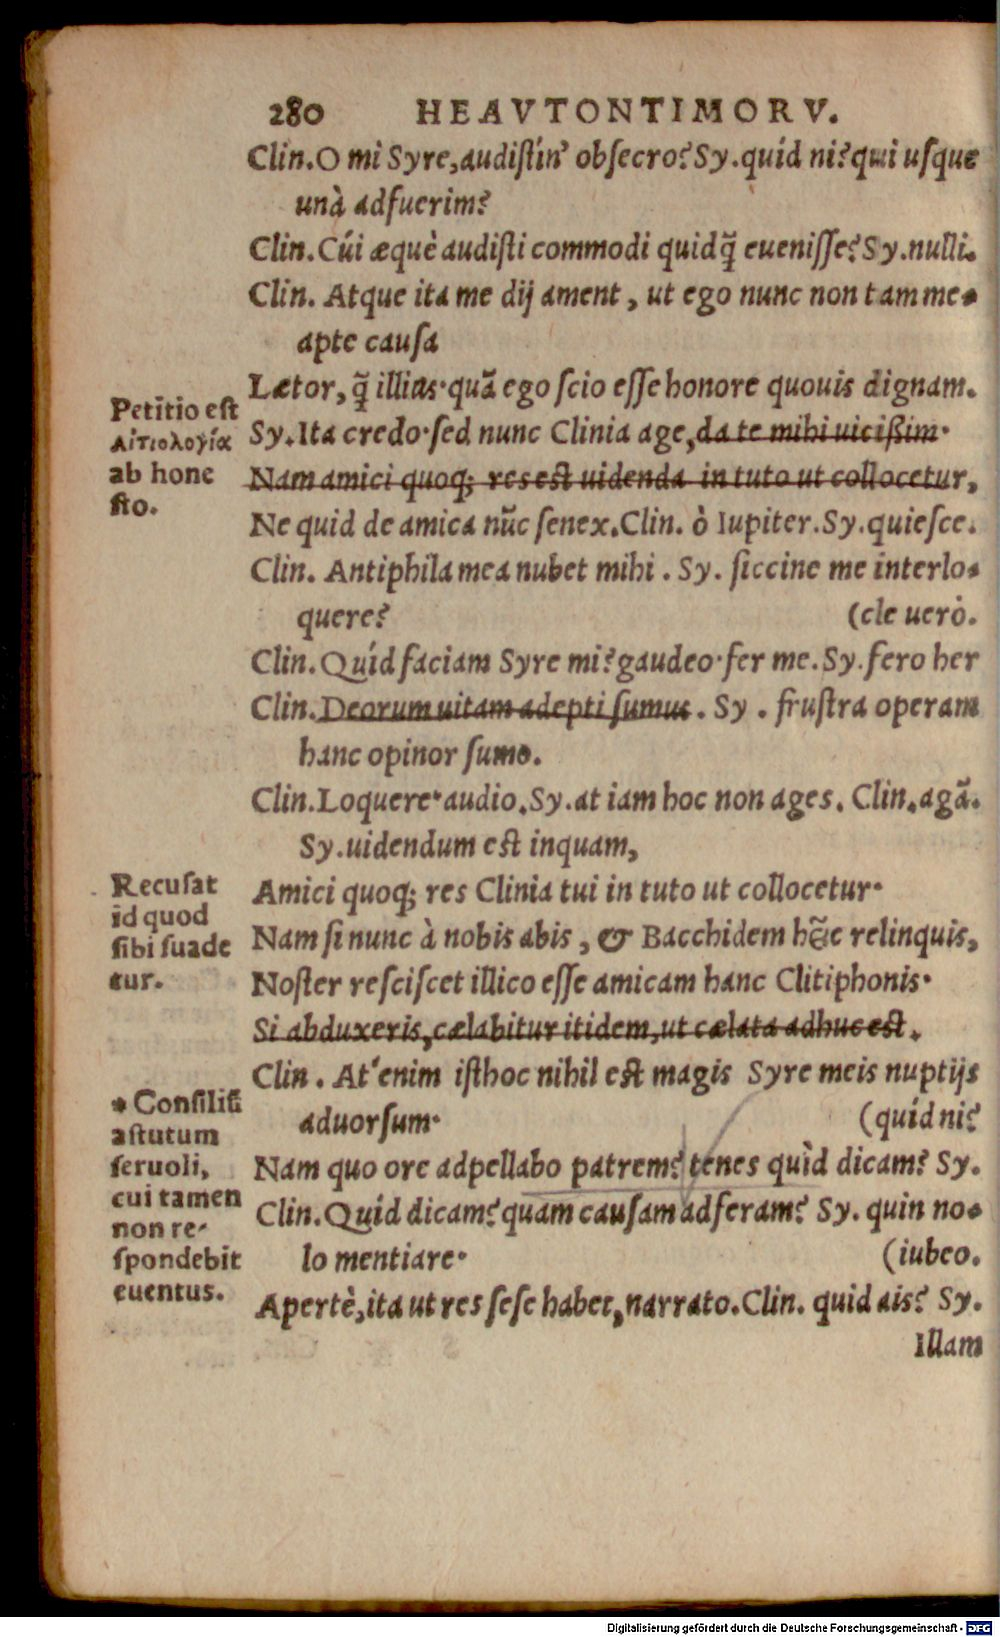 280 HEAVTONTIMORV.
Clin. O mi Syre, audistin' obsecro? Sy. quid ni? qui usque
unà adfuerim?
Clin. Cúi æquè audisti commodi quidq̃ euenisse? Sy. nulli.
Clin. Atque ita me dij ament, ut ego nunc non tam me-
apte causa
Lætor, q̃ illius· quã ego scio esse honore quouis dignam.
Sy. Ita credo· sed nunc Clinia age, da te mihi uicißim·
Nam amici quoq; res est uidenda in tuto ut collocetur,
Ne quid de amica nũc senex. Clin. ô Iupiter. Sy. quiesce.
Clin. Antiphila mea nubet mihi. Sy. siccine me interlo-
quere? (cle uerò.
Clin. Quíd faciam Syre mi? gaudeo· fer me. Sy. fero her
Clin. Deorum uitam adepti sumus. Sy. frustra operam
hanc opinor sumo.
Clin. Loquere· audio. Sy. at iam hoc non ages. Clin. agã.
Sy. uidendum est inquam,
Amici quoq; res Clinia tui in tuto ut collocetur·
Nam si nunc à nobis abis, & Bacchidem hĩc relinquis,
Noster resciscet illico esse amicam hanc Clitiphonis·
Si abduxeris, cælabitur itidem, ut cælata adhuc est.
Clin. At'enim isthoc nihil est magis Syre meis nuptijs
aduorsum· (quíd ni?
Nam quo ore adpellabo patrem? tenes quìd dicam? Sy.
Clin. Quíd dicam? quam causam adferam? Sy. quin no-
lo mentiare· (iubeo.
Apertè, ita ut res sese habet, narrato. Clin. quid ais? Sy.
Illam
Petitio est
αἰτιολογία
ab hone
sto.
Recusat
id quod
sibi suade
tur.
* Consiliũ
astutum
seruoli,
cui tamen
non re-
spondebit
euentus.
Digitalisierung gefördert durch die Deutsche Forschungsgemeinschaft - DFG